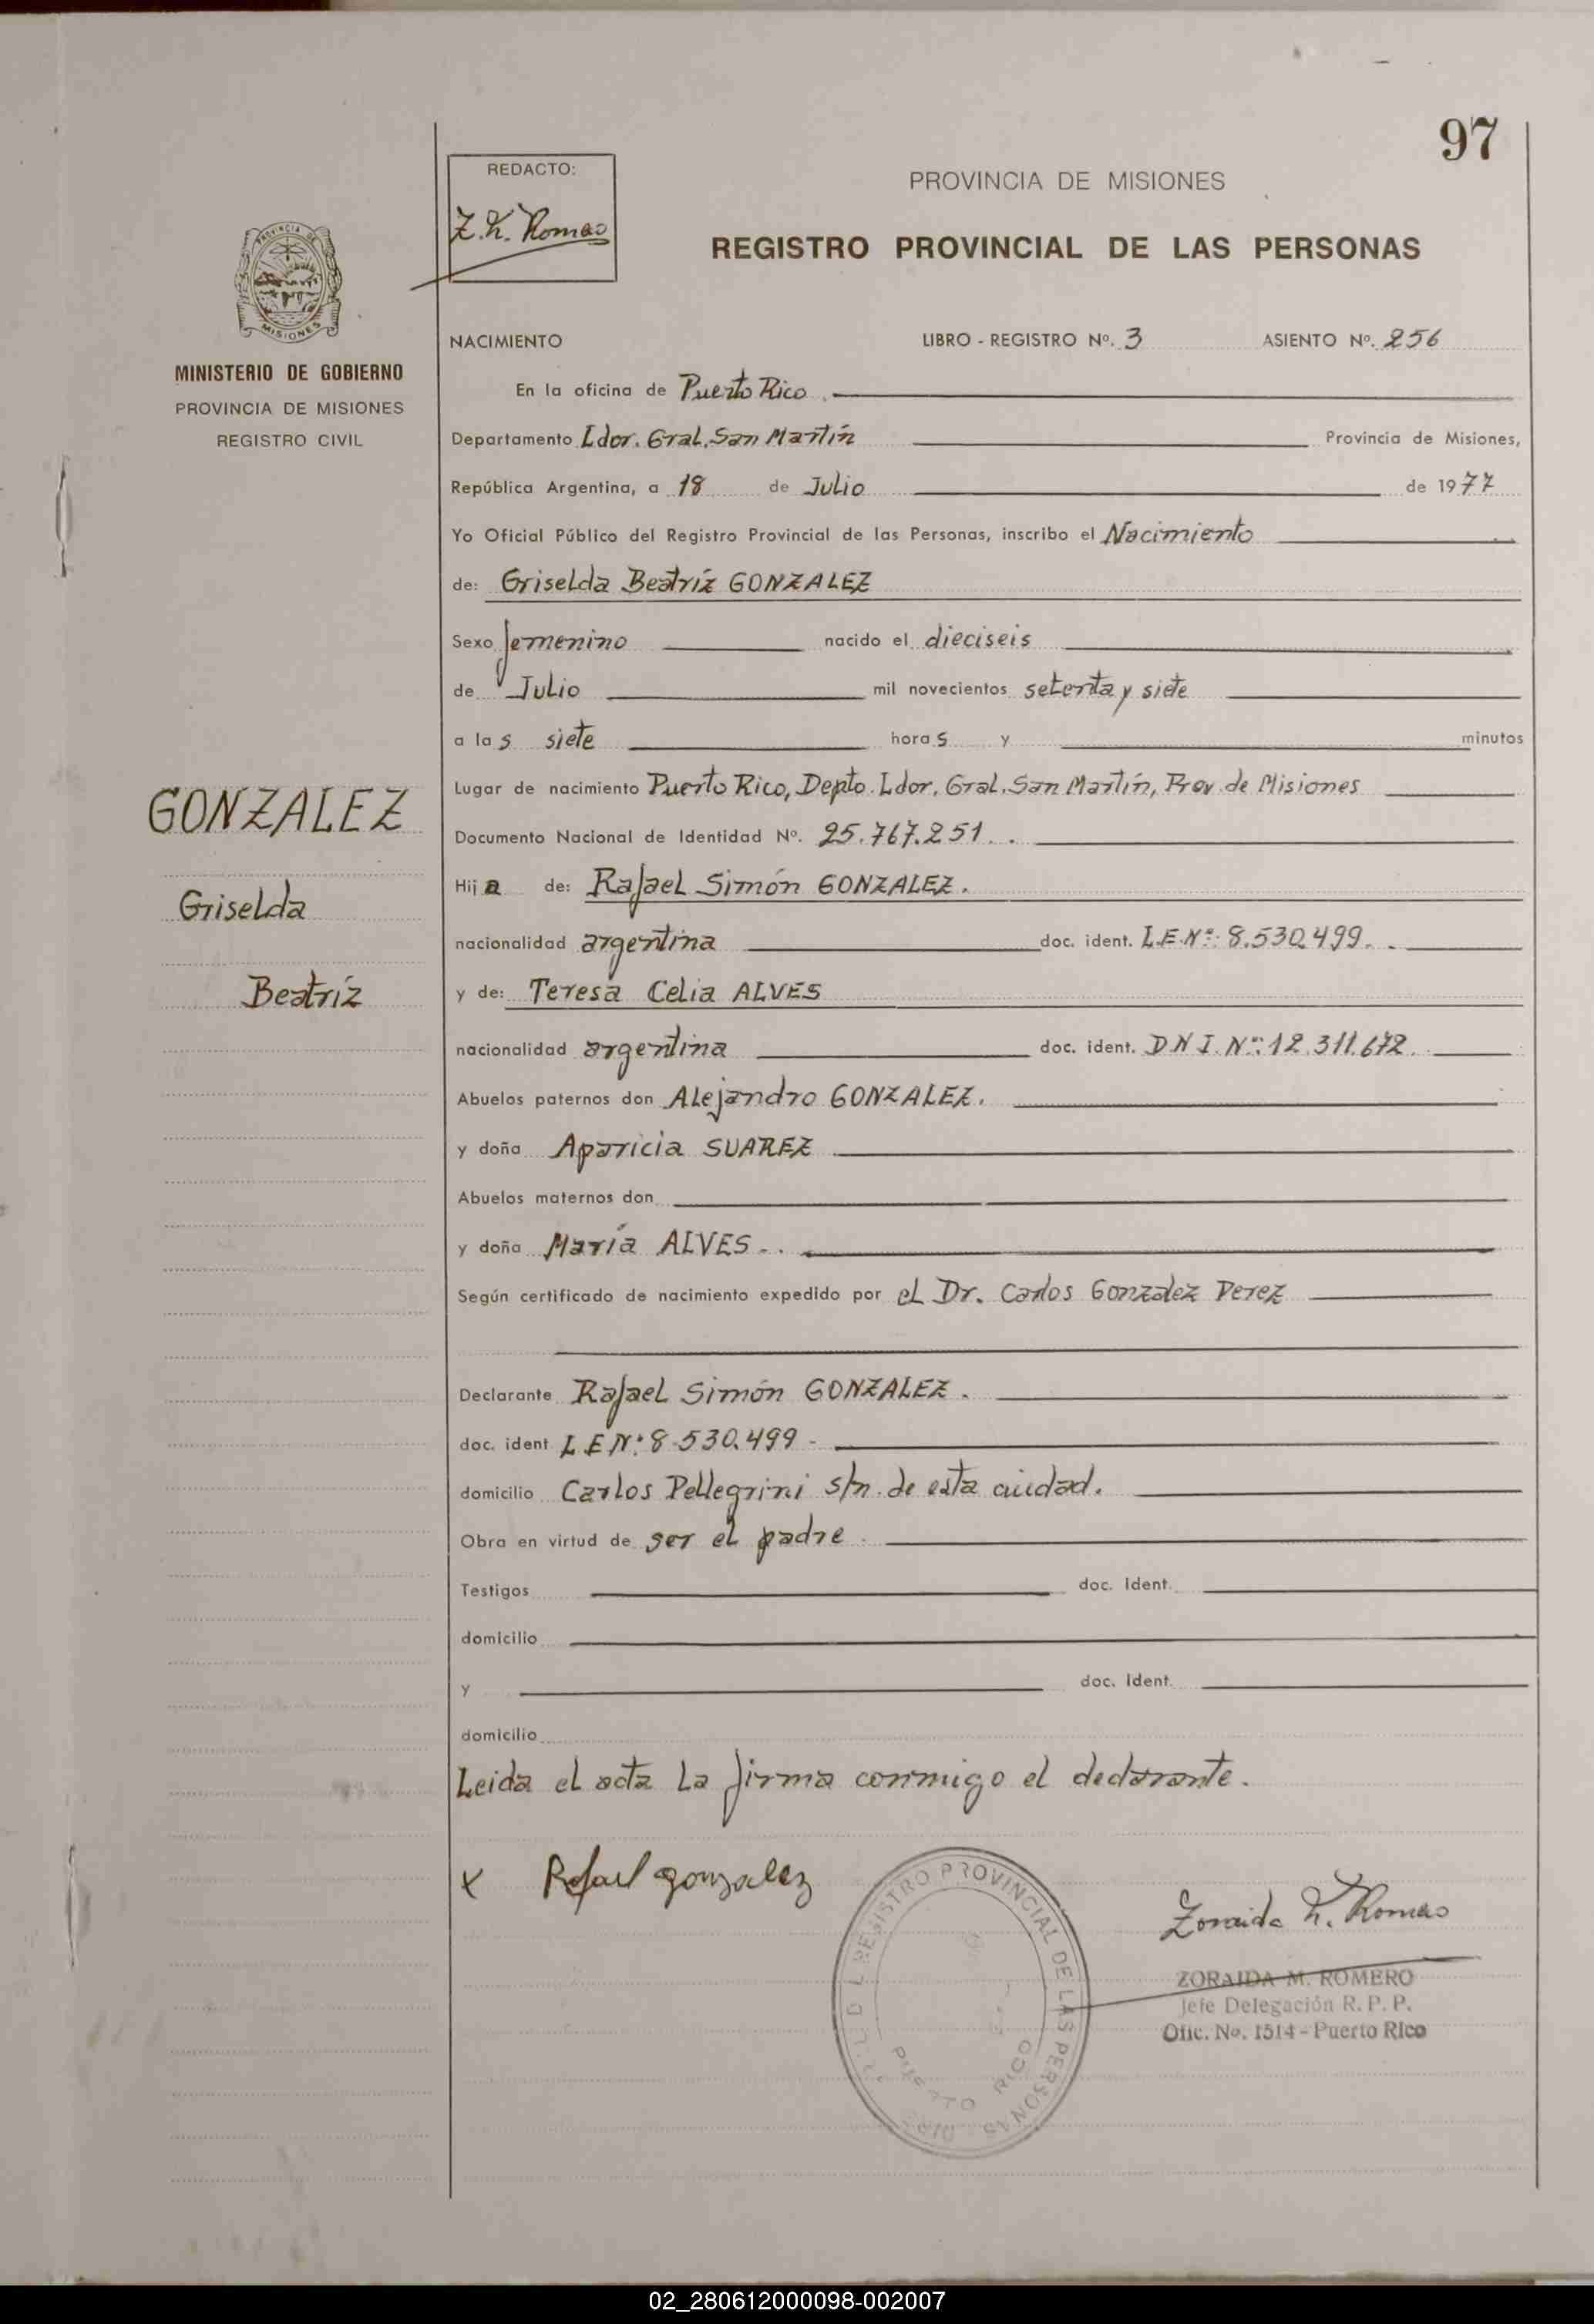 97
REDACTO:
Z. M. Romero
PROVINCIA DE MISIONES
REGISTRO PROVINCIAL DE LAS PERSONAS
PROVINCIA DE
MISIONES
MINISTERIO DE GOBIERNO
PROVINCIA DE MISIONES
REGISTRO CIVIL
GONZALEZ
Griselda
Beatríz
NACIMIENTO LIBRO - REGISTRO Nº. 3 ASIENTO Nº. 256
En la oficina de Puerto Rico
Departamento Ldor. Gral. San Martín Provincia de Misiones,
República Argentina, a 18 de Julio de 1977
Yo Oficial Público del Registro Provincial de las Personas, inscribo el Nacimiento
de: Griselda Beatríz GONZALEZ
Sexo femenino nacido el dieciseis
de Julio mil novecientos setenta y siete
a las siete horas y minutos
Lugar de nacimiento Puerto Rico, Depto. Ldor. Gral. San Martín, Prov. de Misiones
Documento Nacional de Identidad Nº. 25.767.251.
Hija de: Rafael Simón GONZALEZ.
nacionalidad argentina doc. ident. L.E.Nº: 8.530.499.
y de: Teresa Celia ALVES
nacionalidad argentina doc. ident. D N I. Nº: 12.311.672
Abuelos paternos don Alejandro GONZALEZ.
y doña Aparicia SUAREZ
Abuelos maternos don
y doña María ALVES.
Según certificado de nacimiento expedido por el Dr. Carlos Gonzalez Perez
Declarante Rafael Simón GONZALEZ.
doc. ident L E Nº: 8.530.499 -
domicilio Carlos Pellegrini s/n. de esta ciudad.
Obra en virtud de ser el padre.
Testigos doc. Ident.
domicilio
y doc. Ident.
domicilio
Leida el acta la firma conmigo el declarante.
x Rafael gonzalez
REGISTRO PROVINCIAL DE LAS PERSONAS
PUERTO RICO
Zoraida M. Romero
ZORAIDA M. ROMERO
Jefe Delegación R. P. P.
Ofic. No. 1514 - Puerto Rico
02_280612000098-002007